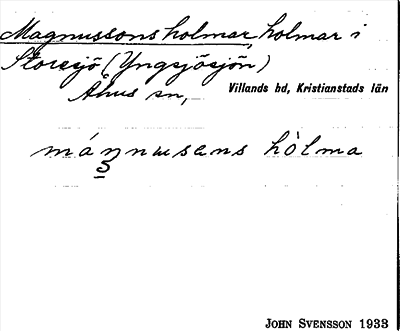 Magnussonsholmar, holmar i
Storesjö (Yngsjösjön)
Åhus sn, Villands hd, Kristianstads län
máŋnusens hòlma
JOHN SVENSSON 1933